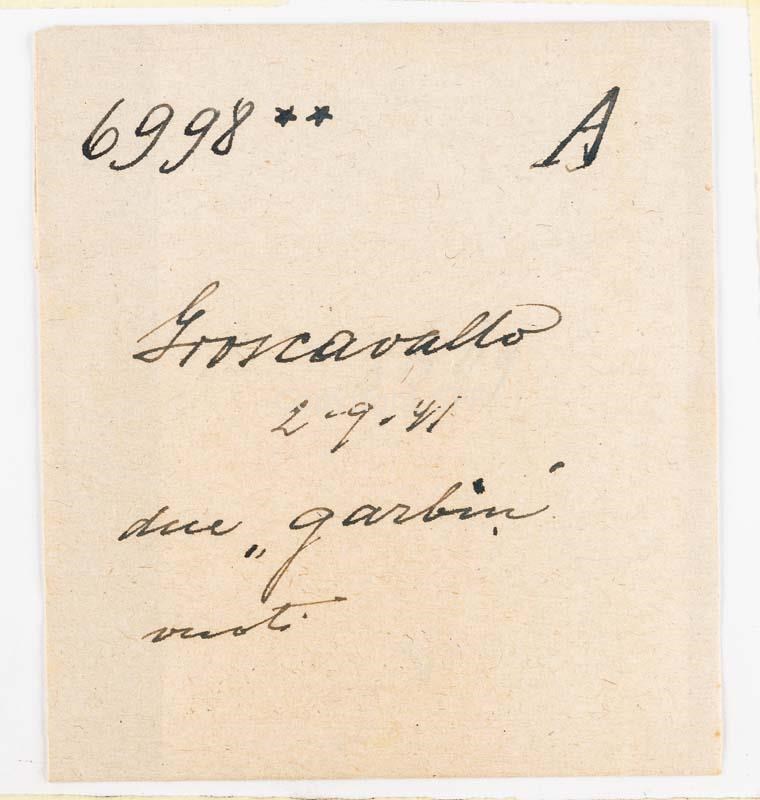 6998 ** A
Groscavallo
2-9-41
due „garbin"
vuoti